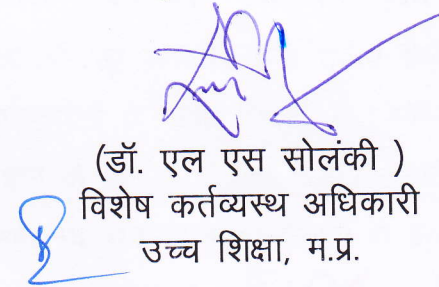 (डॉ. एल एस सोलंकी )
विशेष कर्तव्यस्थ अधिकारी
उच्च शिक्षा, म.प्र.